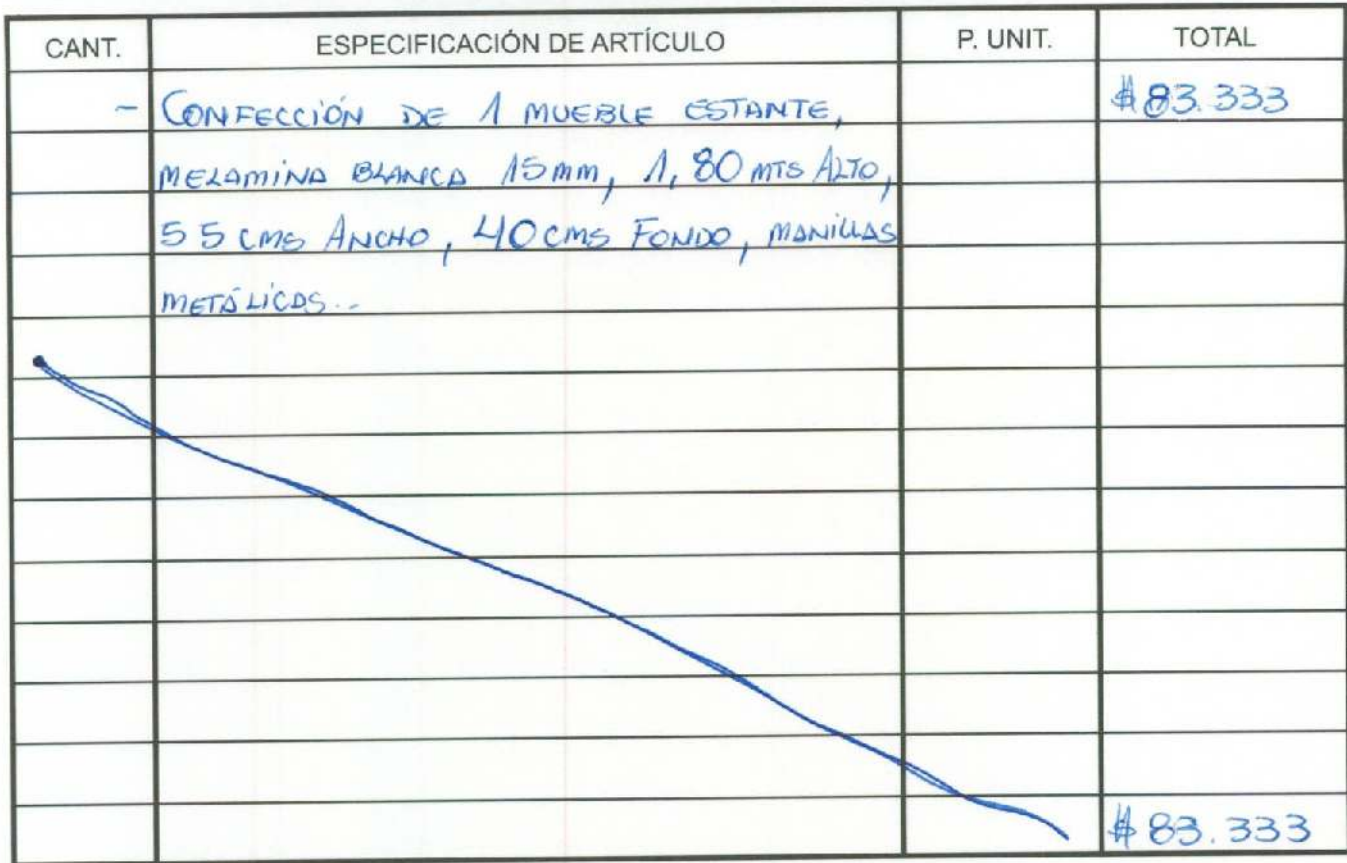 CANT. ESPECIFICACIÓN DE ARTÍCULO P. UNIT. TOTAL
- CONFECCIÓN DE 1 MUEBLE ESTANTE, $83.333
MELAMINA BLANCA 15mm, 1,80 MTS ALTO,
55 CMS ANCHO, 40 CMS FONDO, MANILLAS
METÁLICAS..
$83.333